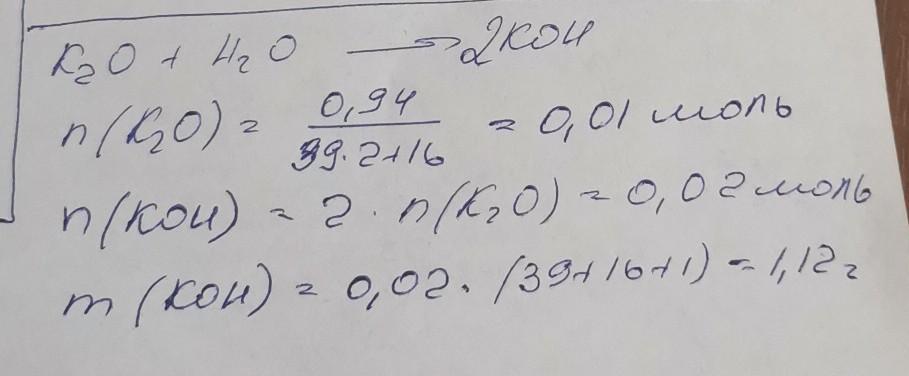 K₂O + H₂O → 2KOH
n(K₂O) = 0,94 / 39·2+16 = 0,01 моль
n(KOH) = 2 · n(K₂O) = 0,02 моль
m(KOH) = 0,02 · (39+16+1) = 1,12 г